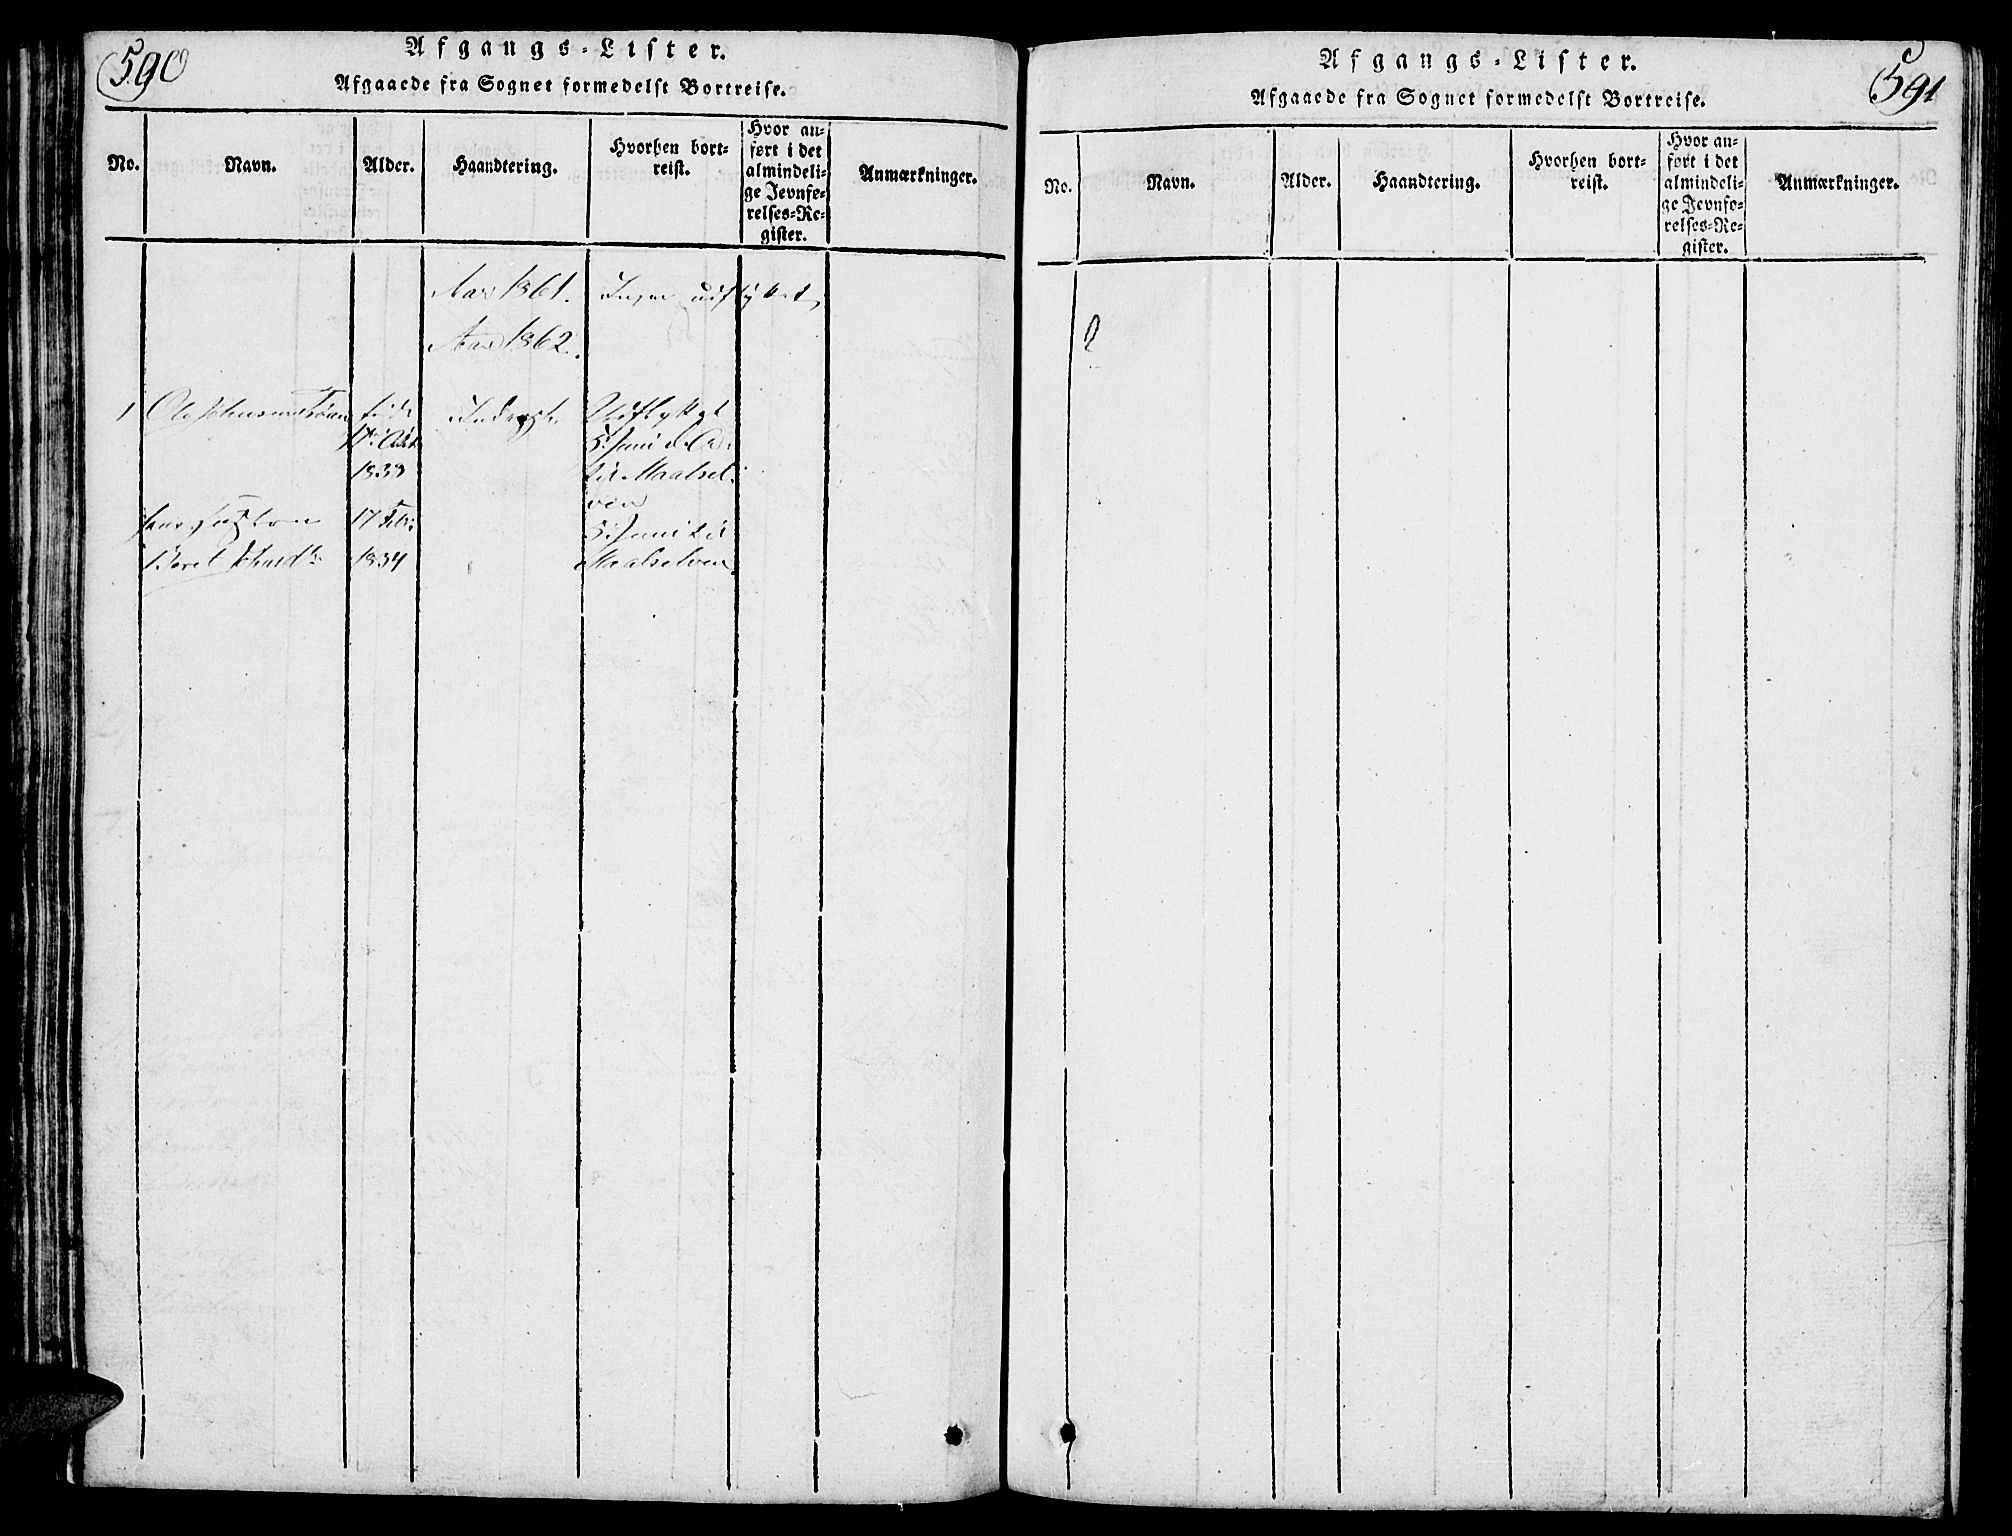 590
Afgangs-Lister.
Afgaaede fra Sognet formedelst Bortreise.
No.
Navn.
Alder.
Haandtering.
Hvorhen bort-
reist.
Hvor an-
ført i det
almindeli-
ge Jevnfø-
relses-Re-
gister.
Anmærkninger.
Aar 1861. Ingen udflyttet
Aar 1862.
1 Ole Inderst Udflyttet
5 Juni
1833 til Maalsel-
ven
hans Hustru 17 Febr 5 Juni til
Beret 1834 Maalselven
591
Afgangs-Lister.
Afgaaede fra Sognet formedelst Bortreise.
No.
Navn.
Alder.
Haandtering.
Hvorhen bort-
reist.
Hvor an-
ført i det
almindeli-
ge Jevnfø-
relses-Re-
gister.
Anmærkninger.